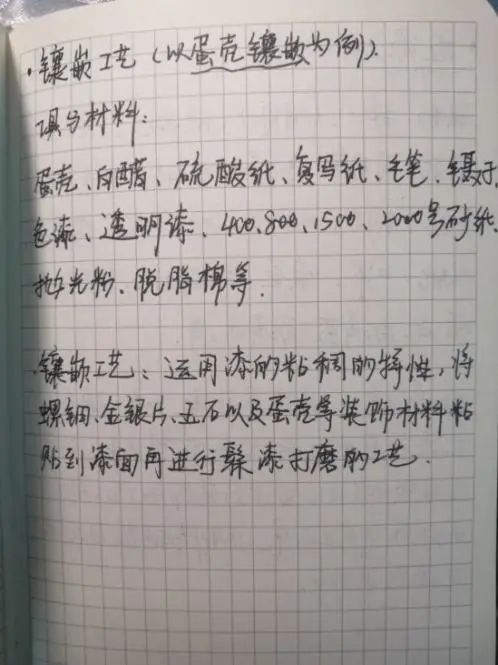 ·镶嵌工艺（以蛋壳镶嵌为例）.
工具与材料：
蛋壳、白醋、硫酸纸、复写纸、毛笔、镊子
色漆、透明漆、400、800、1500、2000号砂纸、
抛光粉、脱脂棉等.
·镶嵌工艺：运用漆的粘稠的特性，将
螺钿、金银片、玉石以及蛋壳等装饰材料粘
贴到漆面再进行髹漆打磨的工艺.